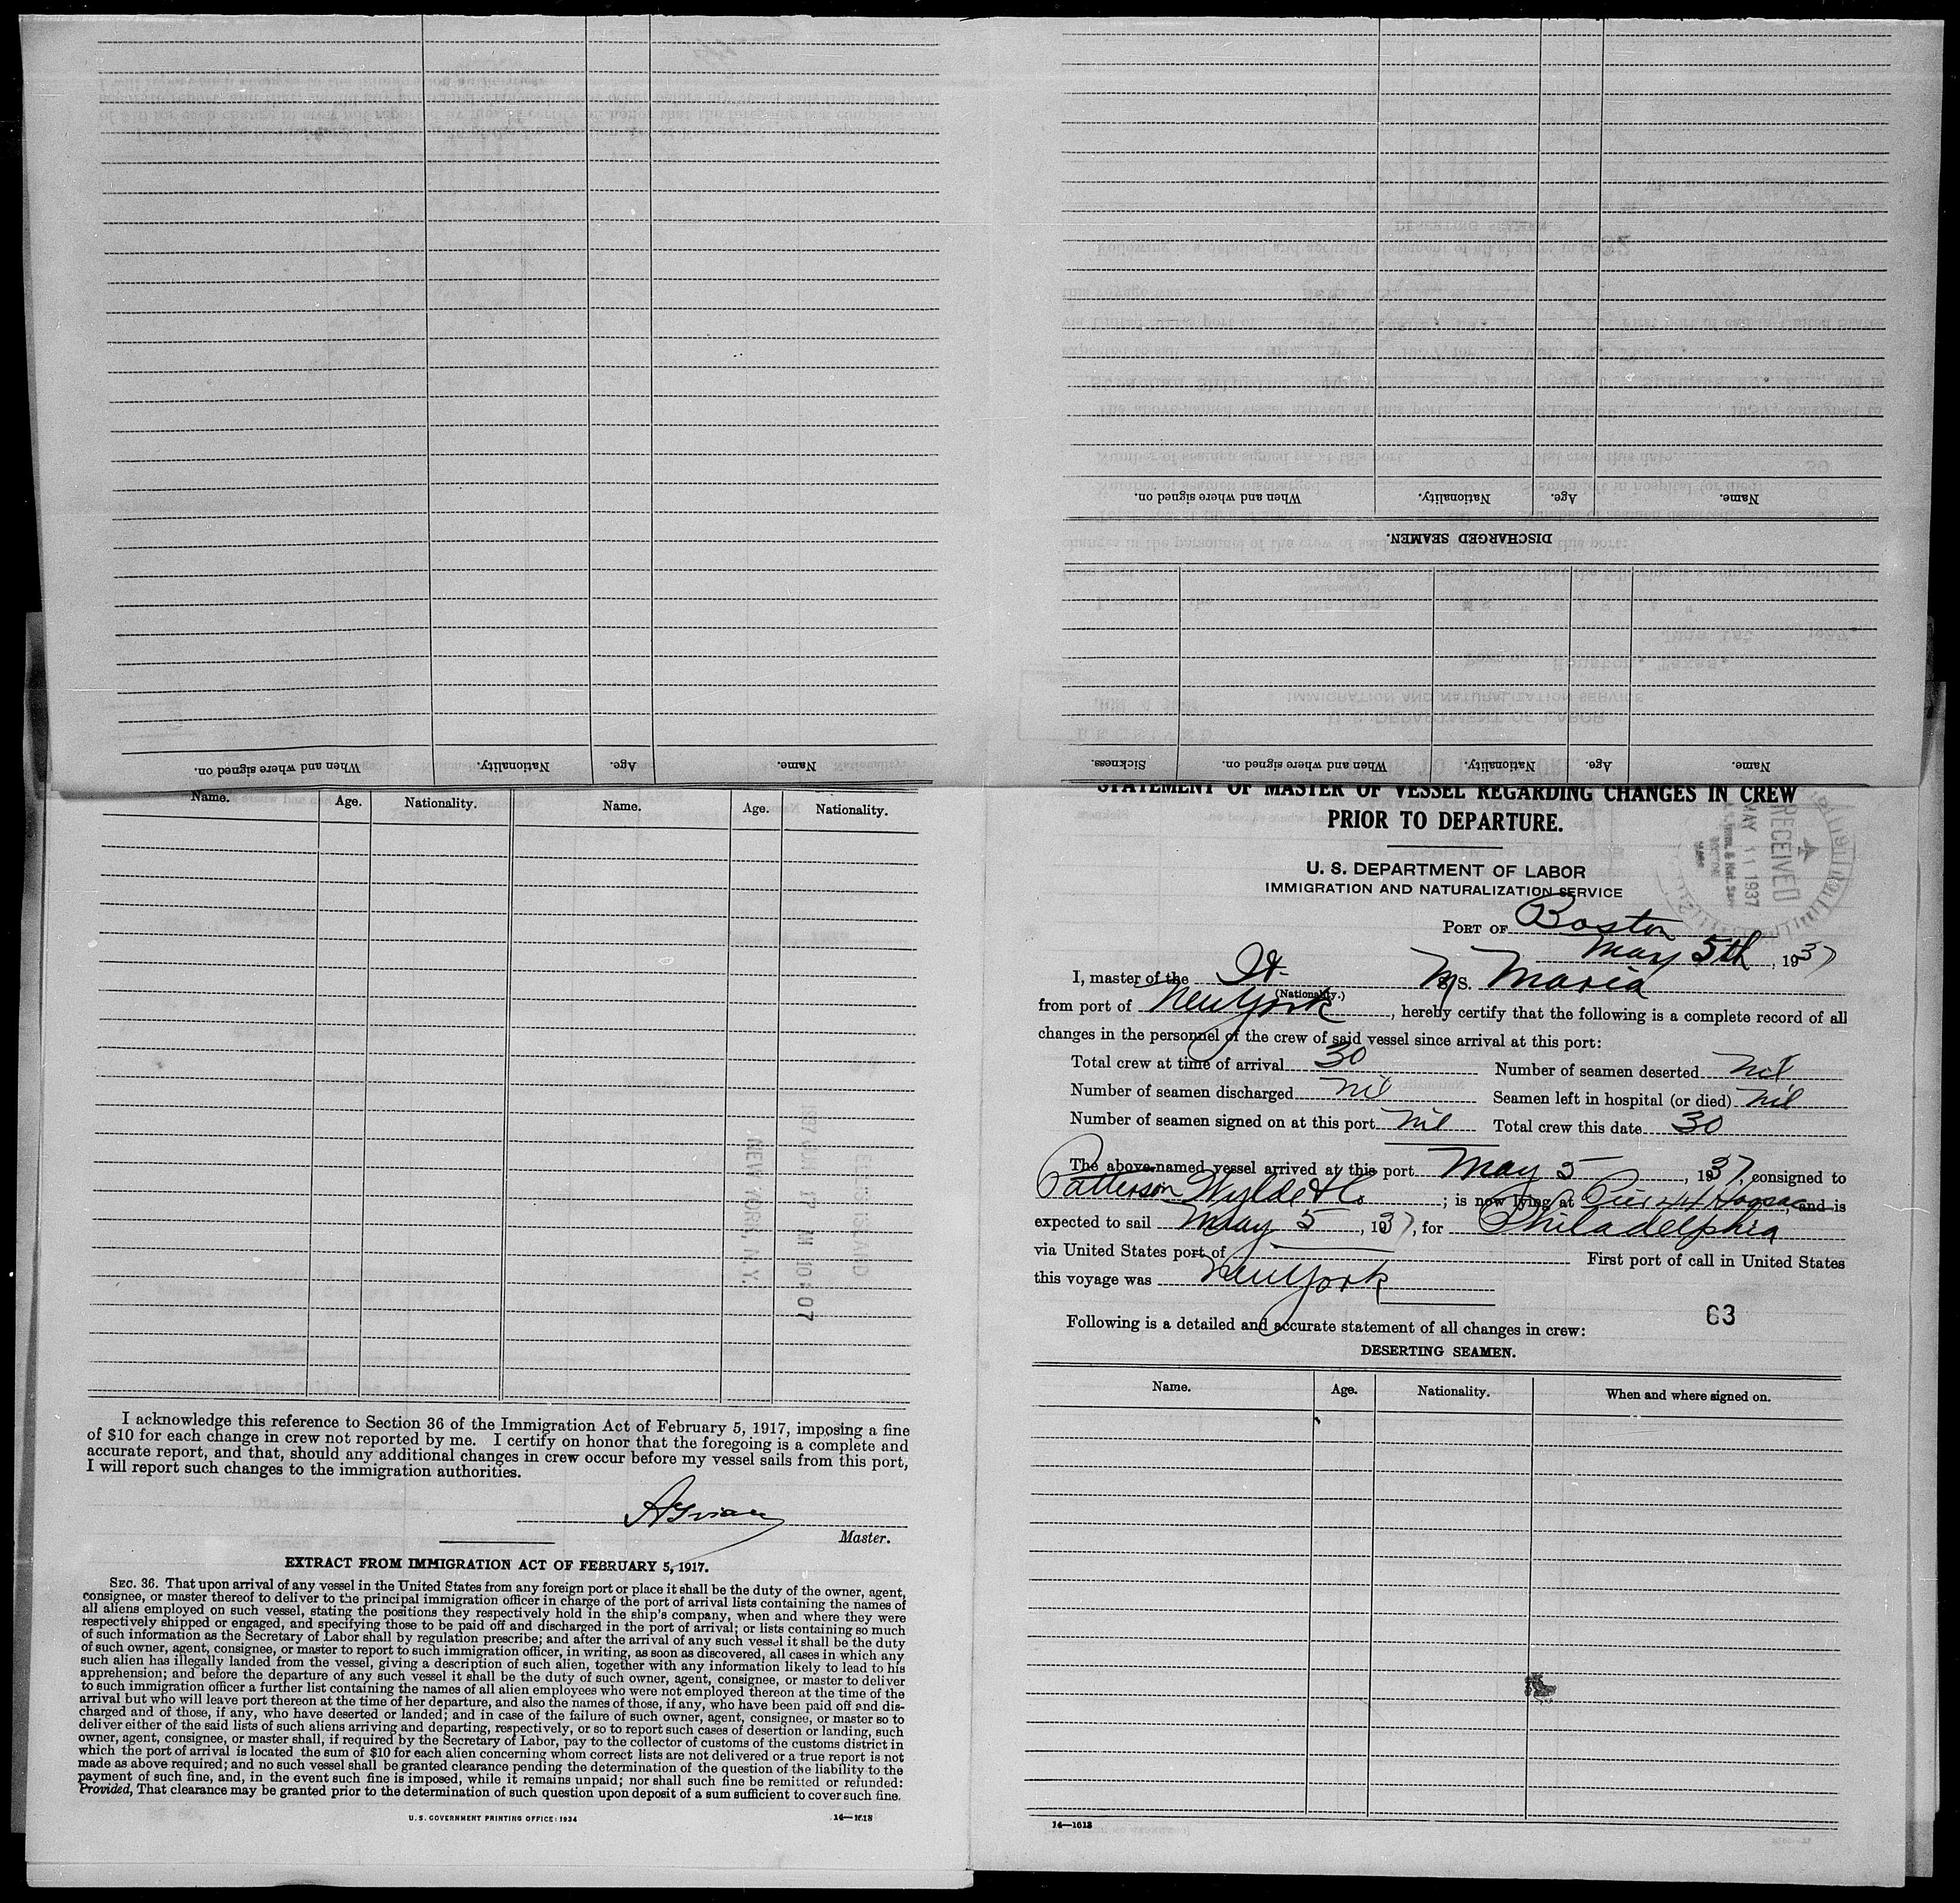 When and where signed on.
Nationality.
Age.
Name.
When and where signed on.
Nationality.
Age.
Name.
DISCHARGED SEAMEN.
Sickness.
When and where signed on.
Nationality.
Age.
Name.
Name.
Age.
Nationality.
Name.
Age.
Nationality.
ELLIS ISLAND
NEW YORK, N.Y.
I acknowledge this reference to Section 36 of the Immigration Act of February 5, 1917, imposing a fine
of $10 for each change in crew not reported by me. I certify on honor that the foregoing is a complete and
accurate report, and that, should any additional changes in crew occur before my vessel sails from this port,
I will report such changes to the immigration authorities.
Master.
EXTRACT FROM IMMIGRATION ACT OF FEBRUARY 5, 1917.
SEC. 36. That upon arrival of any vessel in the United States from any foreign port or place it shall be the duty of the owner, agent,
consignee, or master thereof to deliver to the principal immigration officer in charge of the port of arrival lists containing the names of
all aliens employed on such vessel, stating the positions they respectively hold in the ship's company, when and where they were
respectively shipped or engaged, and specifying those to be paid off and discharged in the port of arrival; or lists containing so much
of such information as the Secretary of Labor shall by regulation prescribe; and after the arrival of any such vessel it shall be the duty
of such owner, agent, consignee, or master to report to such immigration officer, in writing, as soon as discovered, all cases in which any
such alien has illegally landed from the vessel, giving a description of such alien, together with any information likely to lead to his
apprehension; and before the departure of any such vessel it shall be the duty of such owner, agent, consignee, or master to deliver
to such immigration officer a further list containing the names of all alien employees who were not employed thereon at the time of the
arrival but who will leave port thereon at the time of her departure, and also the names of those, if any, who have been paid off and dis-
charged and of those, if any, who have deserted or landed; and in case of the failure of such owner, agent, consignee, or master so to
deliver either of the said lists of such aliens arriving and departing, respectively, or so to report such cases of desertion or landing, such
owner, agent, consignee, or master shall, if required by the Secretary of Labor, pay to the collector of customs of the customs district in
which the port of arrival is located the sum of $10 for each alien concerning whom correct lists are not delivered or a true report is not
made as above required; and no such vessel shall be granted clearance pending the determination of the question of the liability to the
payment of such fine, and, in the event such fine is imposed, while it remains unpaid; nor shall such fine be remitted or refunded:
Provided, That clearance may be granted prior to the determination of such question upon deposit of a sum sufficient to cover such fine.
U. S. GOVERNMENT PRINTING OFFICE: 1934
14—1618
STATEMENT OF MASTER OF VESSEL REGARDING CHANGES IN CREW
PRIOR TO DEPARTURE.
RECEIVED
MAY 11 1937
U. S. DEPARTMENT OF LABOR
IMMIGRATION AND NATURALIZATION SERVICE
PORT OF Boston
May 5th, 1937
I, master of the It. M/S. Maria
(Nationality.)
from port of New York, hereby certify that the following is a complete record of all
changes in the personnel of the crew of said vessel since arrival at this port:
Total crew at time of arrival 30 Number of seamen deserted Nil
Number of seamen discharged Nil Seamen left in hospital (or died) Nil
Number of seamen signed on at this port Nil Total crew this date 30
The above-named vessel arrived at this port May 5, 1937, consigned to
Patterson Wylde & Co; is now lying at Pier 44 Hoosac, and is
expected to sail May 5, 1937, for Philadelphia
via United States port of First port of call in United States
this voyage was New York
63
Following is a detailed and accurate statement of all changes in crew:
DESERTING SEAMEN.
Name.
Age.
Nationality.
When and where signed on.
14—1618